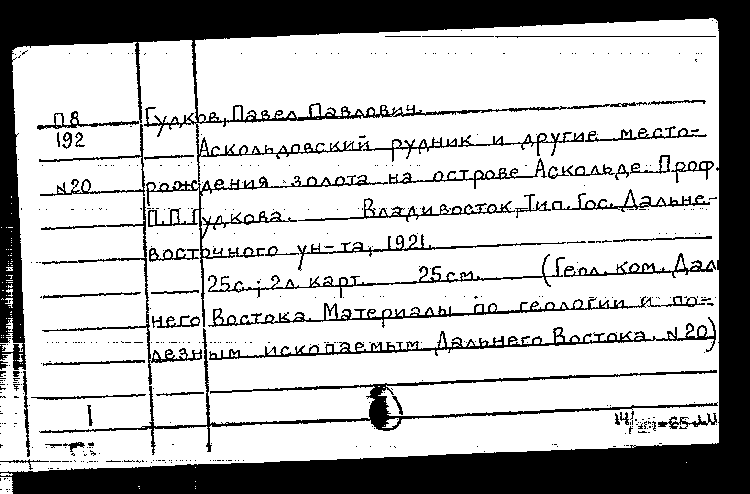 П8 Гудков, Павел Павлович.
192 Аскольдовский рудник и другие место-
N20 рождения золота на острове Аскольде. Проф.
П.П. Гудкова. Владивосток, Тип. Гос. Дальне-
восточного ун-та, 1921.
25с.; 2л. карт. 25см. (Геол. ком. Дал
него Востока. Материалы по геологии и по-
лезным ископаемым Дальнего Востока. N20)
I